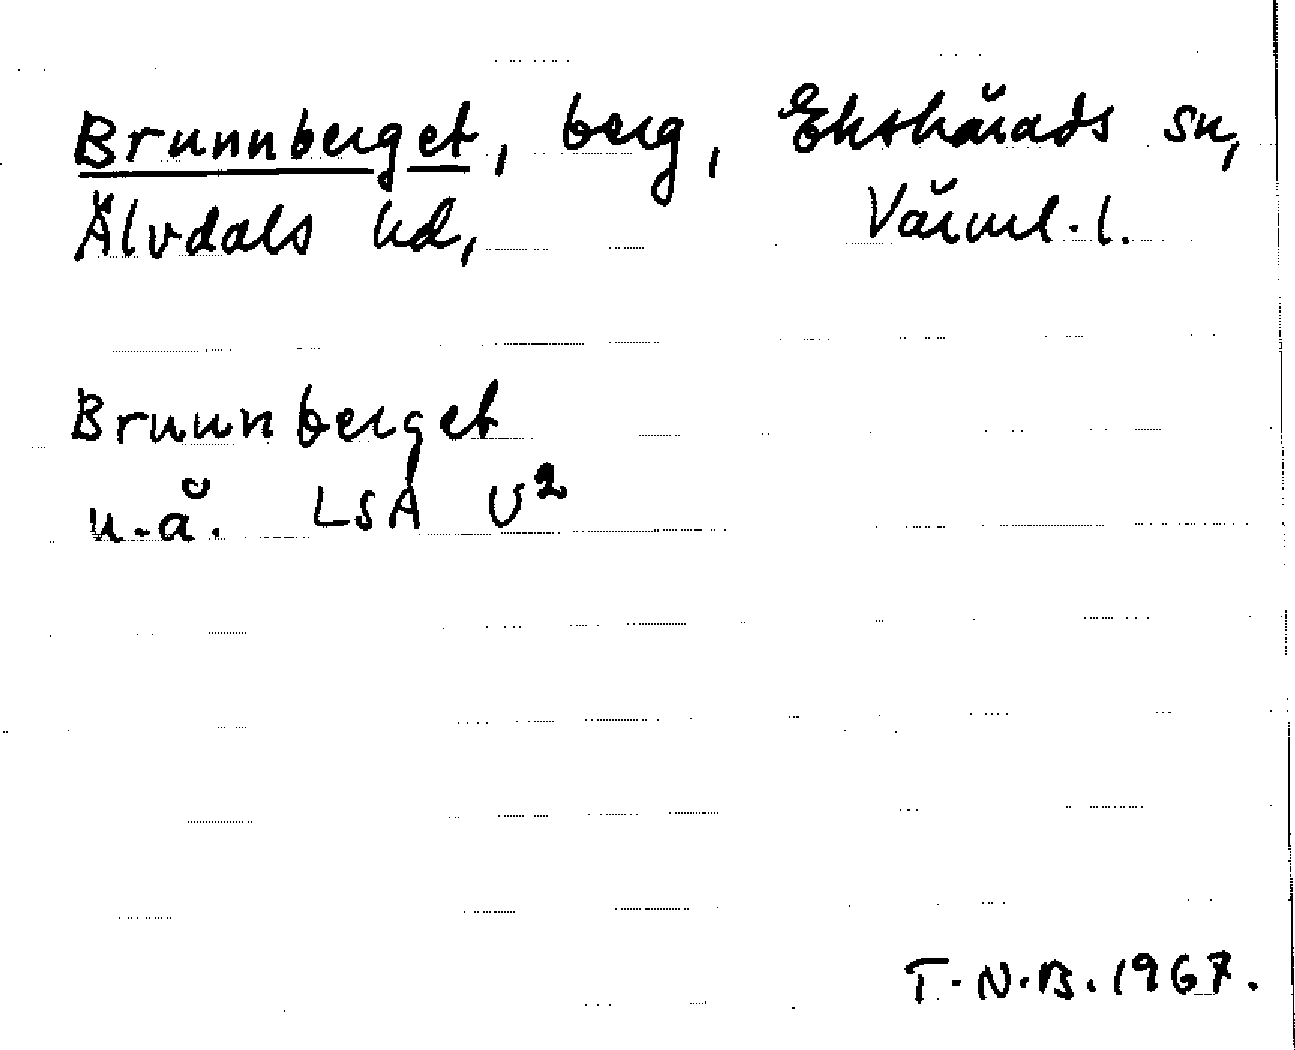 Brunnberget, berg, Ekshärads sn,
Älvdals hd, Värml. l.
Brunnberget
u.å. LSA U²
T.N.B. 1967.